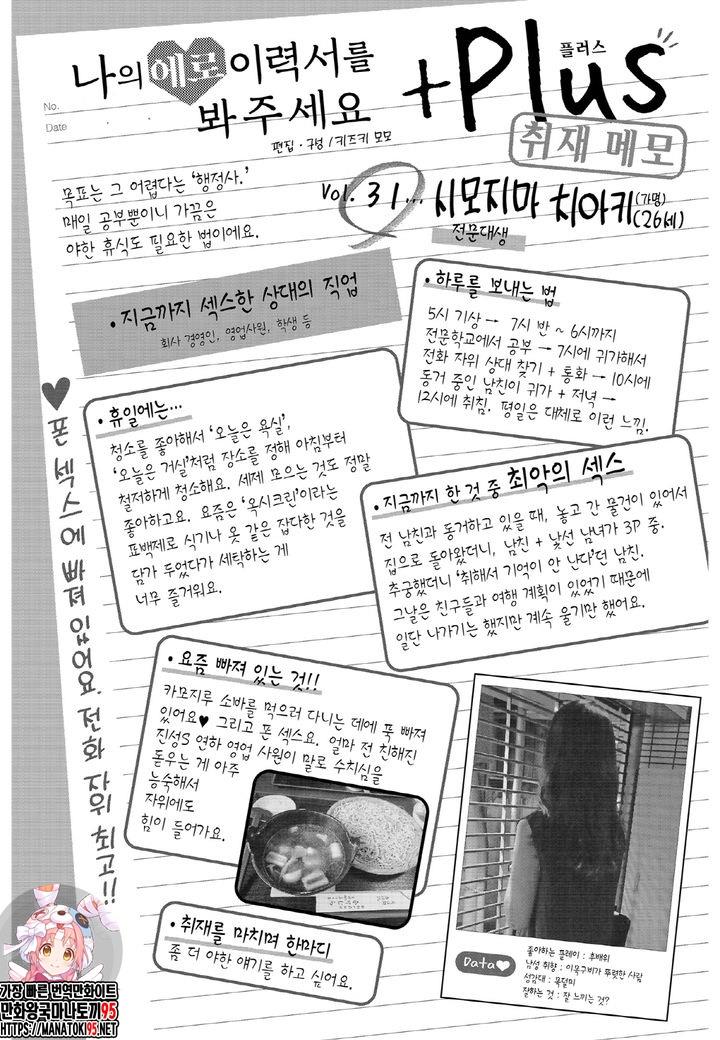 나의 에로 이력서를
봐 주세요
+Plus
플러스
취재 메모
No.
Date
편집·구성 / 키즈키 모모
목표는 그 어렵다는 '행정사.'
매일 공부뿐이니 가끔은
야한 휴식도 필요한 법이에요.
Vol. 31... 시모지마 치아키 (가명)
(26세)
전문대생
• 지금까지 섹스한 상대의 직업
회사 경영인, 영업사원, 학생 등
• 하루를 보내는 법
5시 기상 → 7시 반 ~ 6시까지
전문학교에서 공부 → 7시에 귀가해서
전화 자위 상대 찾기 + 통화 → 10시에
동거 중인 남친이 귀가 + 저녁 →
12시에 취침. 평일은 대체로 이런 느낌.
♥ 폰 섹스에 빠져 있어요. 전화 자위 최고!!
• 휴일에는…
청소를 좋아해서 '오늘은 욕실',
'오늘은 거실'처럼 장소를 정해 아침부터
철저하게 청소해요. 세제 모으는 것도 정말
좋아하고요. 요즘은 '옥시크린'이라는
표백제로 식기나 옷 같은 잡다한 것을
담가 두었다가 세탁하는 게
너무 즐거워요.
• 지금까지 한 것 중 최악의 섹스
전 남친과 동거하고 있을 때, 놓고 간 물건이 있어서
집으로 돌아왔더니, 남친 + 낯선 남녀가 3P 중.
추궁했더니 '취해서 기억이 안 난다'던 남친.
그날은 친구들과 여행 계획이 있었기 때문에
일단 나가기는 했지만 계속 울기만 했어요.
• 요즘 빠져 있는 것!!
카모지루 소바를 먹으러 다니는 데에 푹 빠져
있어요♥ 그리고 폰 섹스요. 얼마 전 친해진
진성S 연하 영업 사원이 말로 수치심을
돋우는 게 아주
능숙해서
자위에도
힘이 들어가요.
• 취재를 마치며 한마디
좀 더 야한 얘기를 하고 싶어요.
Data♥
좋아하는 플레이 : 후배위
남성 취향 : 이목구비가 뚜렷한 사람
성감대 : 목덜미
잘하는 것 : 잘 느끼는 것?
가장 빠른 번역만화이트
만화왕국마나토끼95
HTTPS://MANATOKI95.NET